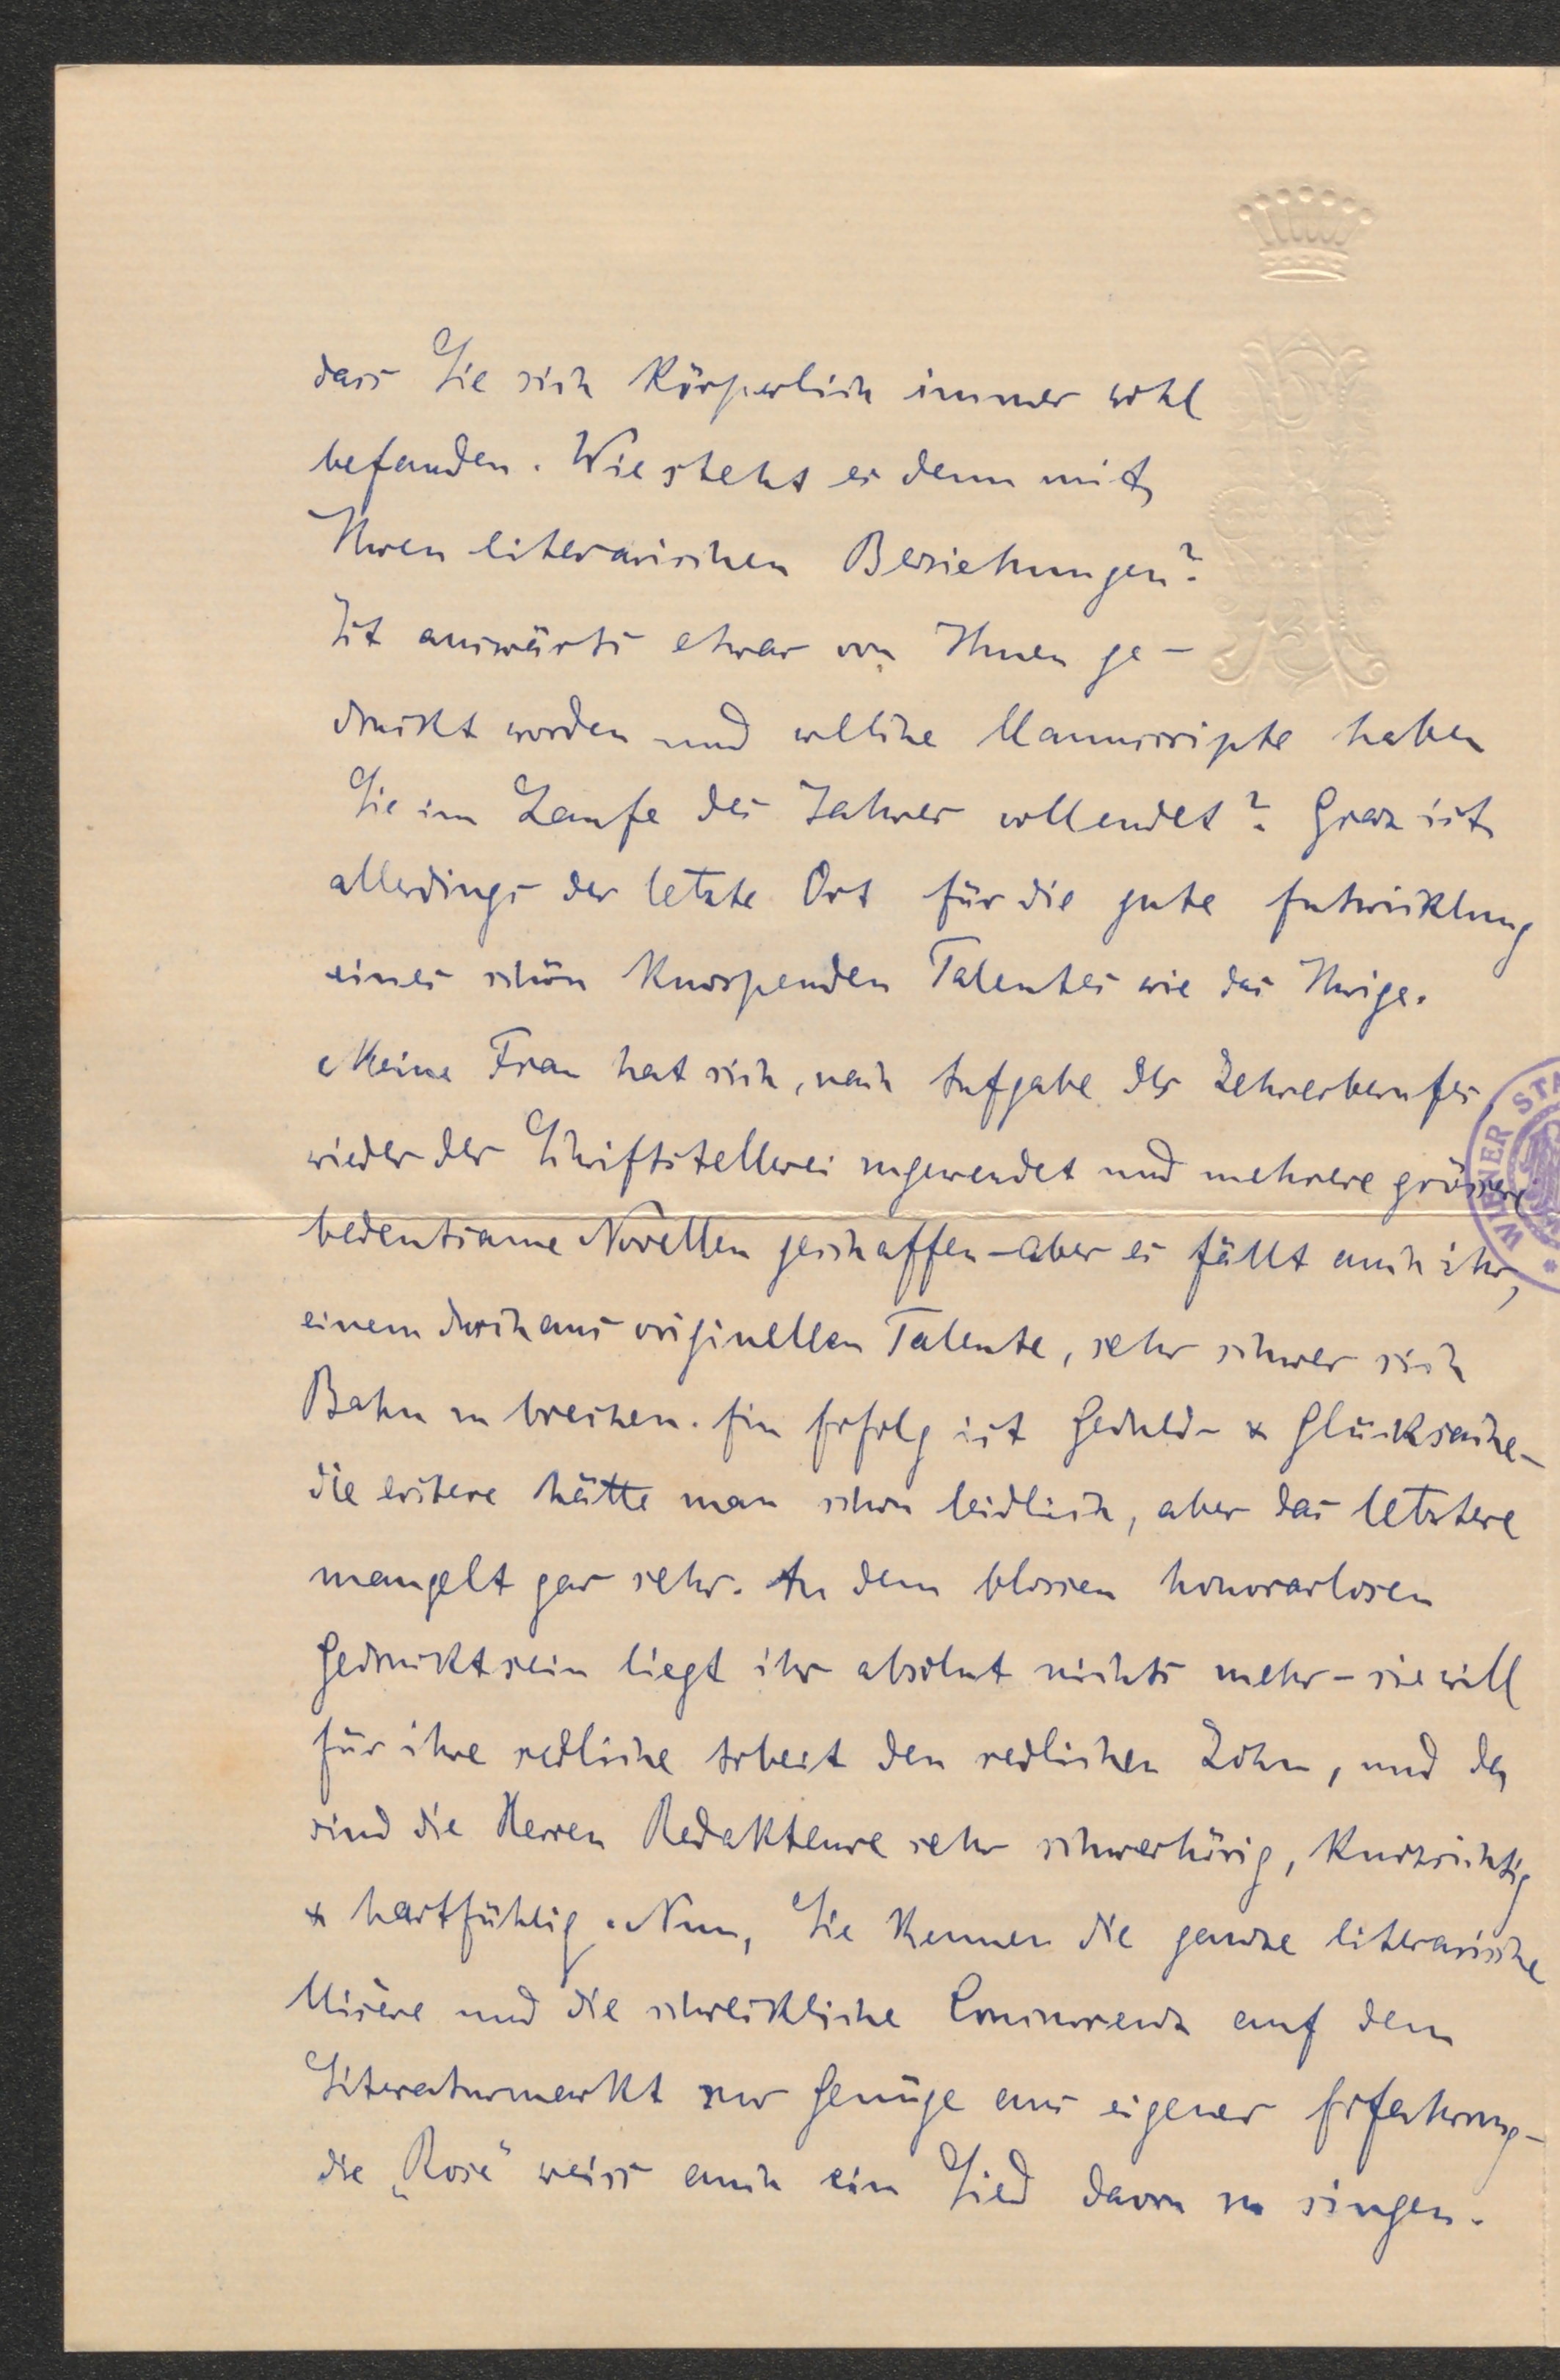 dass Sie sich körperlich immer wohl
befanden. Wie steht es denn mit
Ihren literarischen Beziehungen?
Ist auswärts etwas von Ihnen ge-
druckt worden und welche Manuscripte haben
Sie im Laufe des Jahres vollendet? Graz ist
allerdings der letzte Ort für die gute Entwicklung
eines schön knospenden Talentes wie das Ihrige.
Meine Frau hat sich, nach Aufgabe des Lehrerberufes,
wieder der Schriftstellerei zugewendet und mehrere grössere
bedeutsame Novellen geschaffen - aber es fällt auch ihr,
einem durchaus originellen Talente, sehr schwer sich
Bahn zu brechen. Ein Erfolg ist Geduld- & Glücksache -
die erstere hätte man schon leidlich, aber das letztere
mangelt gar sehr. An dem blossen honorarlosen
Gedrucktsein liegt ihr absolut nichts mehr - sie will
für ihre redliche Arbeit den redlichen Lohn, und da
sind die Herren Redakteure sehr schwerhörig, kurzsichtig
& hartfühlig. Nun, Sie kennen die ganze literarische
Misère und die schreckliche Concurrenz auf dem
Literaturmarkt zur Genüge aus eigener Erfahrung -
die „Rose" weiss auch ein Lied davon zu singen.
WIENER STA